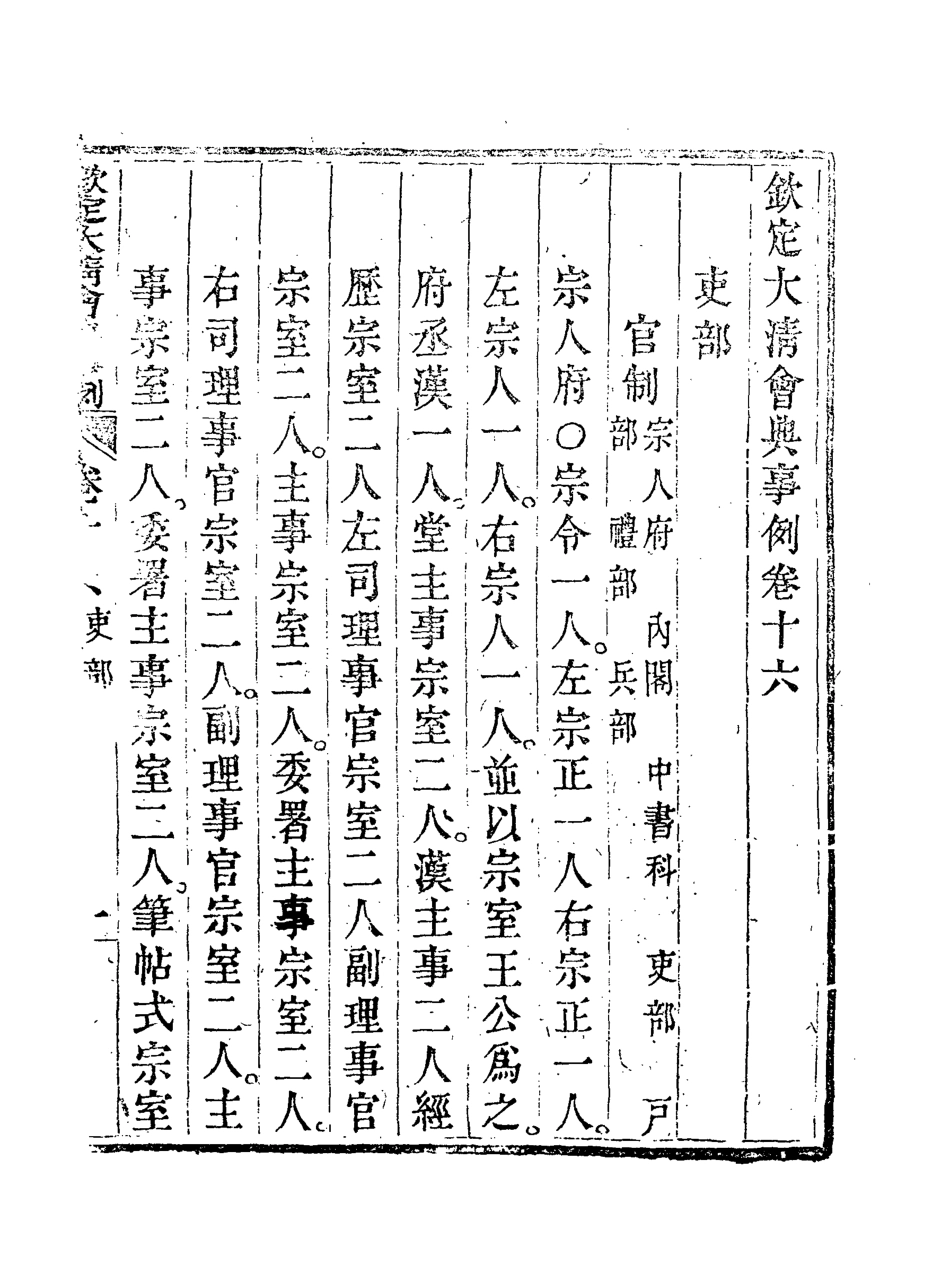 欽定大清會典事例卷十六
吏部
官制宗人府 內閣 中書科 吏部 戸
部 禮部 兵部
宗人府○宗令一人。左宗正一人右宗正一人。
左宗人一人。右宗人一人。並以宗室王公爲之。
府丞漢一人。堂主事宗室二人。漢主事二人經
歷宗室二人左司理事官宗室二人副理事官
宗室二人。主事宗室二人。委署主事宗室二人。
右司理事官宗室二人。副理事官宗室二人。主
事宗室二人。委署主事宗室二人。筆帖式宗室
欽定大清會 卷十 吏部 一